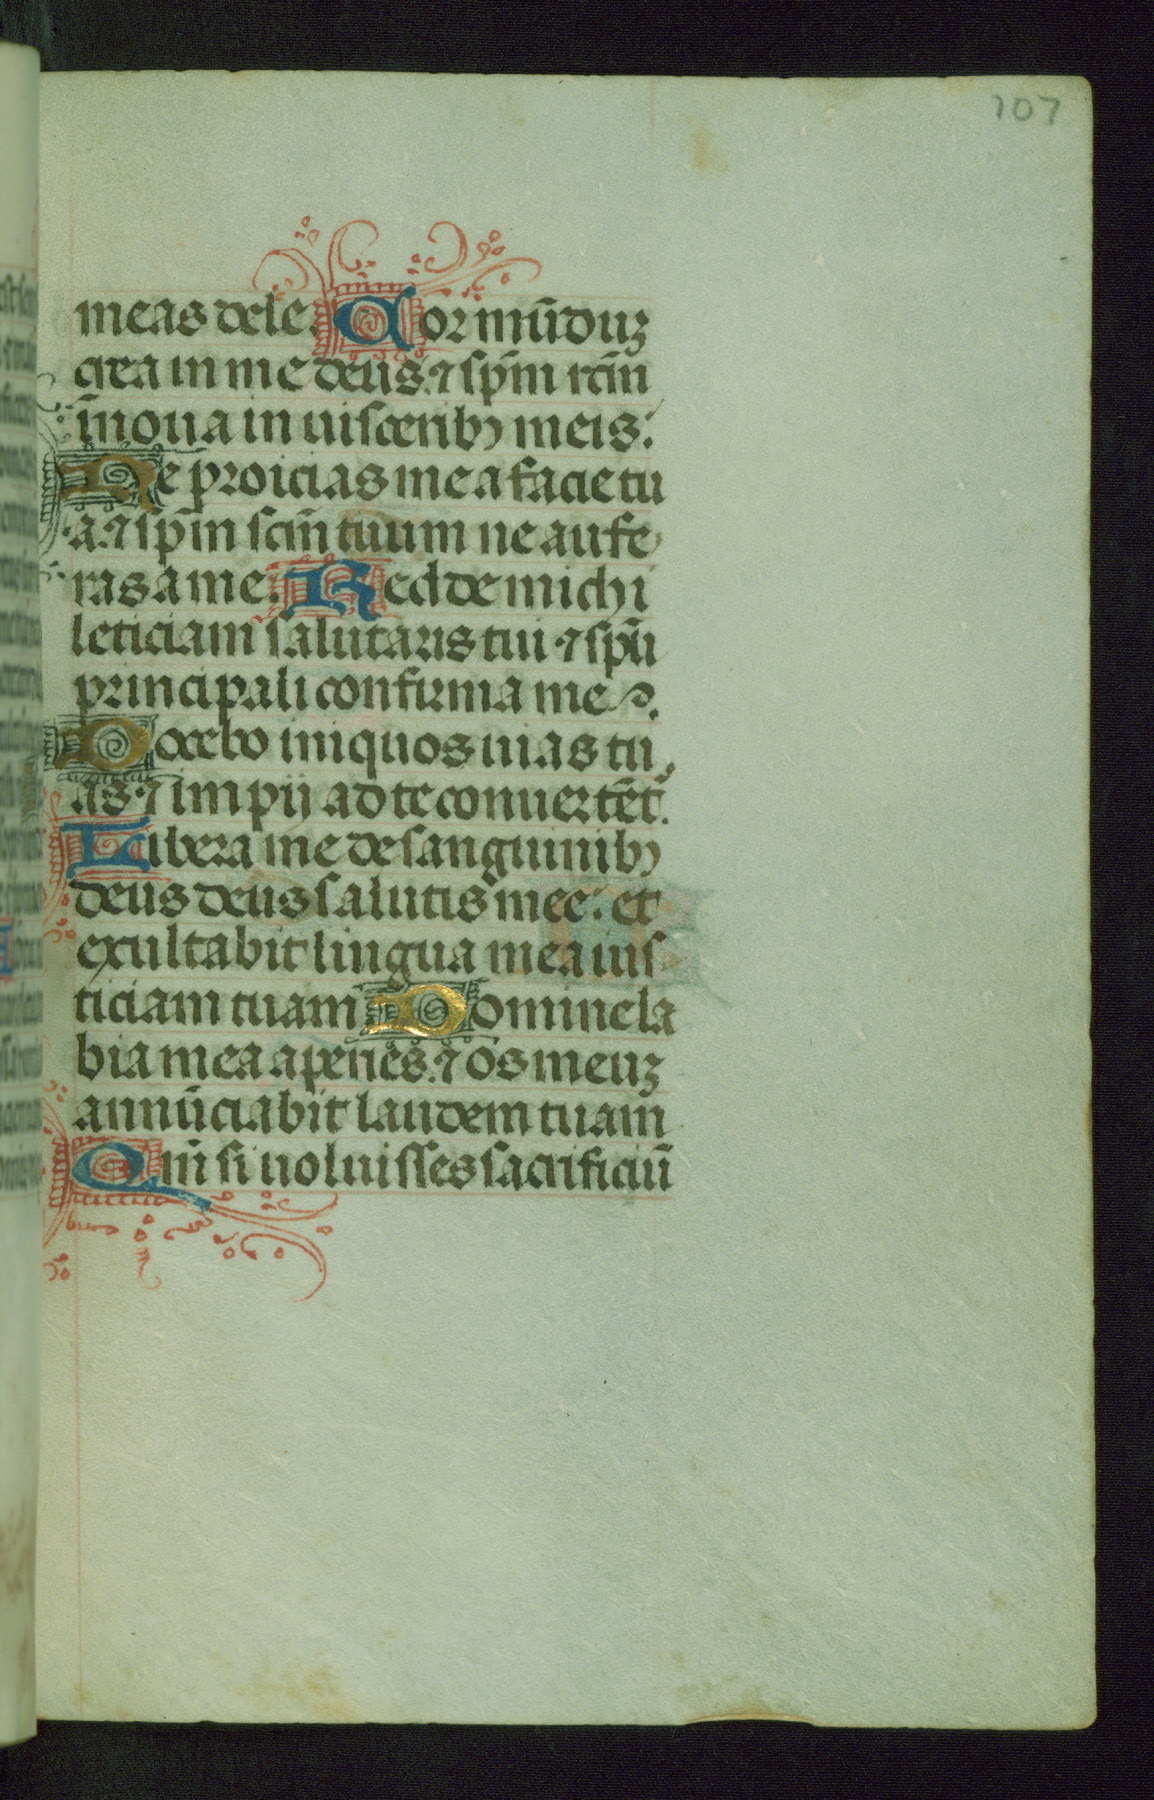 107
meas dele. Cor mūduꝫ
crea in me deus. ⁊ sp̄m rcm̄
īnoua in uisceribꝫ meis:
Ne proicias me a facie tu
a. ⁊ sp̄m scm̄ tuum ne aufe
ras a me. Redde michi
leticiam salutaris tui. ⁊ spū
principali confirma me.
Docebo iniquos uias tu
as. ⁊ impij ad te conuertēt.
Libera me de sanguinibꝫ
deus deus salutis mee: et
exultabit lingua mea ius
ticiam tuam Domine la
bia mea aperies. ⁊ os meuꝫ
annūciabit laudem tuam
Qm̄ si uoluisses sacrificiū